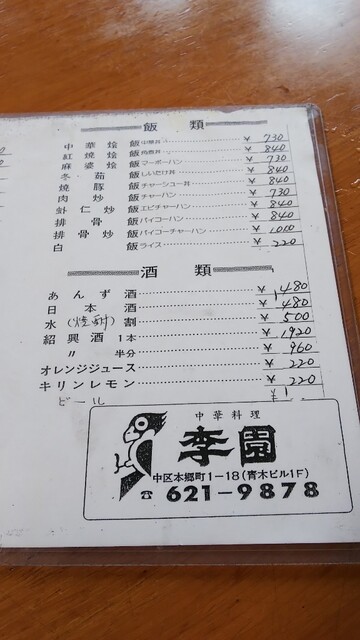 飯類
中華燴飯 中華丼 ¥730
紅焼燴飯 角煮丼 ¥840
麻婆燴飯 マーボーハン ¥730
冬茹飯 しいたけ丼 ¥840
焼豚飯 チャーシュー丼 ¥840
肉炒飯 チャーハン ¥730
蚶仁炒飯 エビチャーハン ¥840
排骨飯 パイコーハン ¥840
排骨炒飯 パイコーチャーハン ¥1010
白飯 ライス ¥220
酒類
あんず酒 ¥480
日本酒 ¥480
水(焼酎)割 ¥500
紹興酒 1本 ¥1920
〃 半分 ¥960
オレンジジュース ¥220
キリンレモン ¥220
ビール ¥
中華料理
李園
中区本郷町1-18(青木ビル1F)
☎621-9878